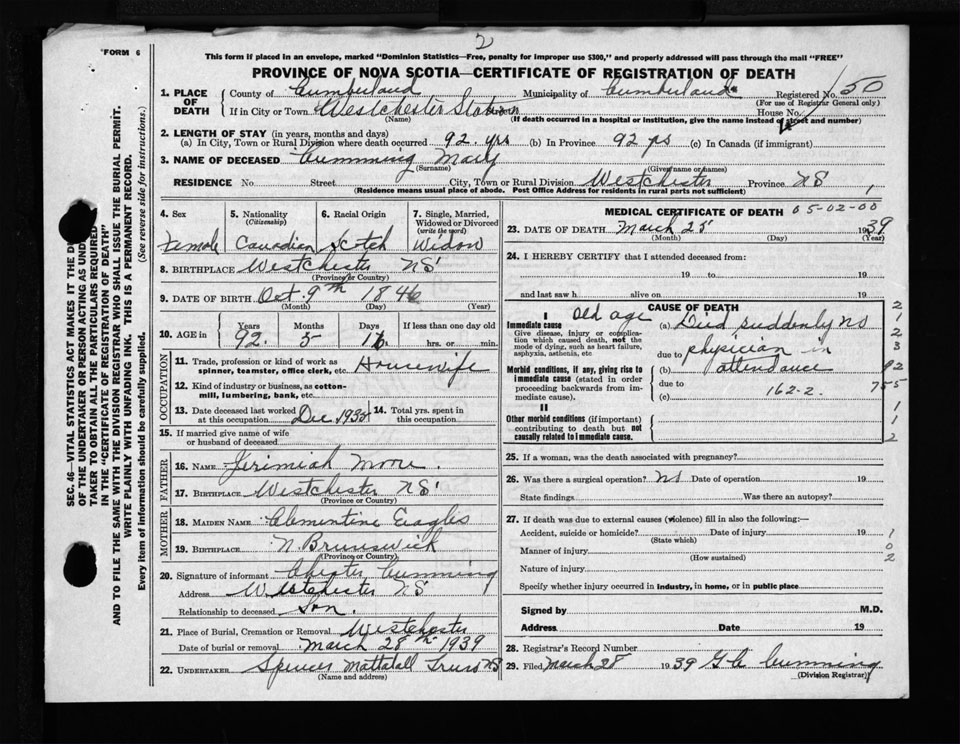 2
FORM 6
This form if placed in an envelope, marked "Dominion Statistics—Free, penalty for improper use $300," and properly addressed will pass through the mail "FREE"
PROVINCE OF NOVA SCOTIA—CERTIFICATE OF REGISTRATION OF DEATH
SEC. 46—VITAL STATISTICS ACT MAKES IT THE DU
OF THE UNDERTAKER OR PERSON ACTING AS UND
TAKER TO OBTAIN ALL THE PARTICULARS REQUIRED
IN THE "CERTIFICATE OF REGISTRATION OF DEATH"
AND TO FILE THE SAME WITH THE DIVISION REGISTRAR WHO SHALL ISSUE THE BURIAL PERMIT.
WRITE PLAINLY WITH UNFADING INK. THIS IS A PERMANENT RECORD.
Every item of information should be carefully supplied. (See reverse side for instructions.)
1. PLACE OF DEATH County of Cumberland Municipality of Cumberland Registered No. 50
(For use of Registrar General only)
If in City or Town Westchester Station House No.
(Name) (If death occurred in a hospital or institution, give the name instead of street and number)
2. LENGTH OF STAY (in years, months and days)
(a) In City, Town or Rural Division where death occurred 92 yrs (b) In Province 92 yrs (c) In Canada (if immigrant)
3. NAME OF DECEASED Cumming Mary
(Surname) (Given name or names)
RESIDENCE No Street City, Town or Rural Division Westchester Province NS 1
(Residence means usual place of abode. Post Office Address for residents in rural parts not sufficient)
4. Sex 5. Nationality (Citizenship) 6. Racial Origin 7. Single, Married, Widowed or Divorced (write the word)
Female Canadian Scotch Widow
8. BIRTHPLACE Westchester NS
(Province or Country)
9. DATE OF BIRTH Oct. 9th 1846
(Month) (Day) (Year)
10. AGE in Years Months Days If less than one day old
92 5 16 hrs. or min.
OCCUPATION
11. Trade, profession or kind of work as spinner, teamster, office clerk, etc. Housewife
12. Kind of industry or business, as cotton-mill, lumbering, bank, etc.
13. Date deceased last worked at this occupation Dec. 14. Total yrs. spent in this occupation
15. If married give name of wife or husband of deceased
FATHER
16. NAME Jerimiah Moore.
17. BIRTHPLACE Westchester NS
(Province or Country)
MOTHER
18. MAIDEN NAME Clementine Eagles
19. BIRTHPLACE N. Brunswick
(Province or Country)
20. Signature of informant Chester Cumming
Address Westchester NS
Relationship to deceased Son.
21. Place of Burial, Cremation or Removal Westchester
Date of burial or removal March 28th 1939
22. UNDERTAKER Spencer Mattatall Truro NS
(Name and address)
MEDICAL CERTIFICATE OF DEATH 05-02-00
23. DATE OF DEATH March 25 1939
(Month) (Day) (Year)
24. I HEREBY CERTIFY that I attended deceased from:
19 to 19
and last saw h alive on 19
CAUSE OF DEATH
I
Immediate cause Old age (a) Died suddenly no
Give disease, injury or complication which caused death, not the mode of dying, such as heart failure, asphyxia, asthenia, etc
due to physician in
Morbid conditions, if any, giving rise to immediate cause (stated in order proceeding backwards from immediate cause.)
(b) attendance
due to
(c) 162-2.
II
Other morbid conditions (if important) contributing to death but not causally related to immediate cause.
2
1
2
3
92
755
1
1
2
25. If a woman, was the death associated with pregnancy?
26. Was there a surgical operation? no Date of operation 19
State findings Was there an autopsy?
27. If death was due to external causes (violence) fill in also the following:—
Accident, suicide or homicide? Date of injury 19
(State which)
Manner of injury
(How sustained)
Nature of injury
1
0
2
Specify whether injury occurred in industry, in home, or in public place
Signed by M.D.
Address Date 19
28. Registrar's Record Number
29. Filed March 28 1939 Cumming
(Division Registrar)